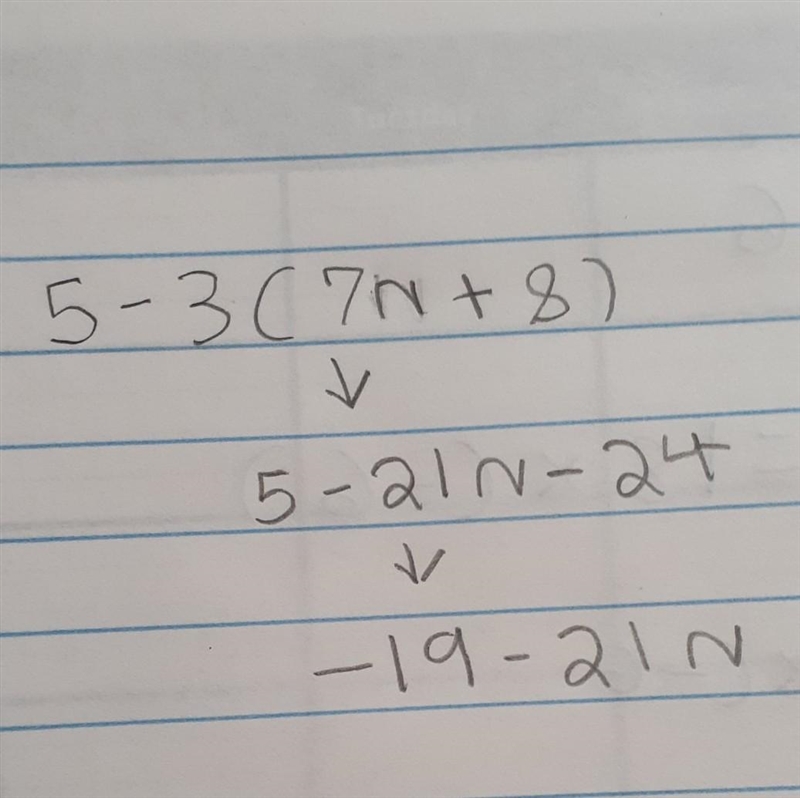 5 - 3 ( 7n + 8 )
↓
5 - 21n - 24
↓
-19 - 21n